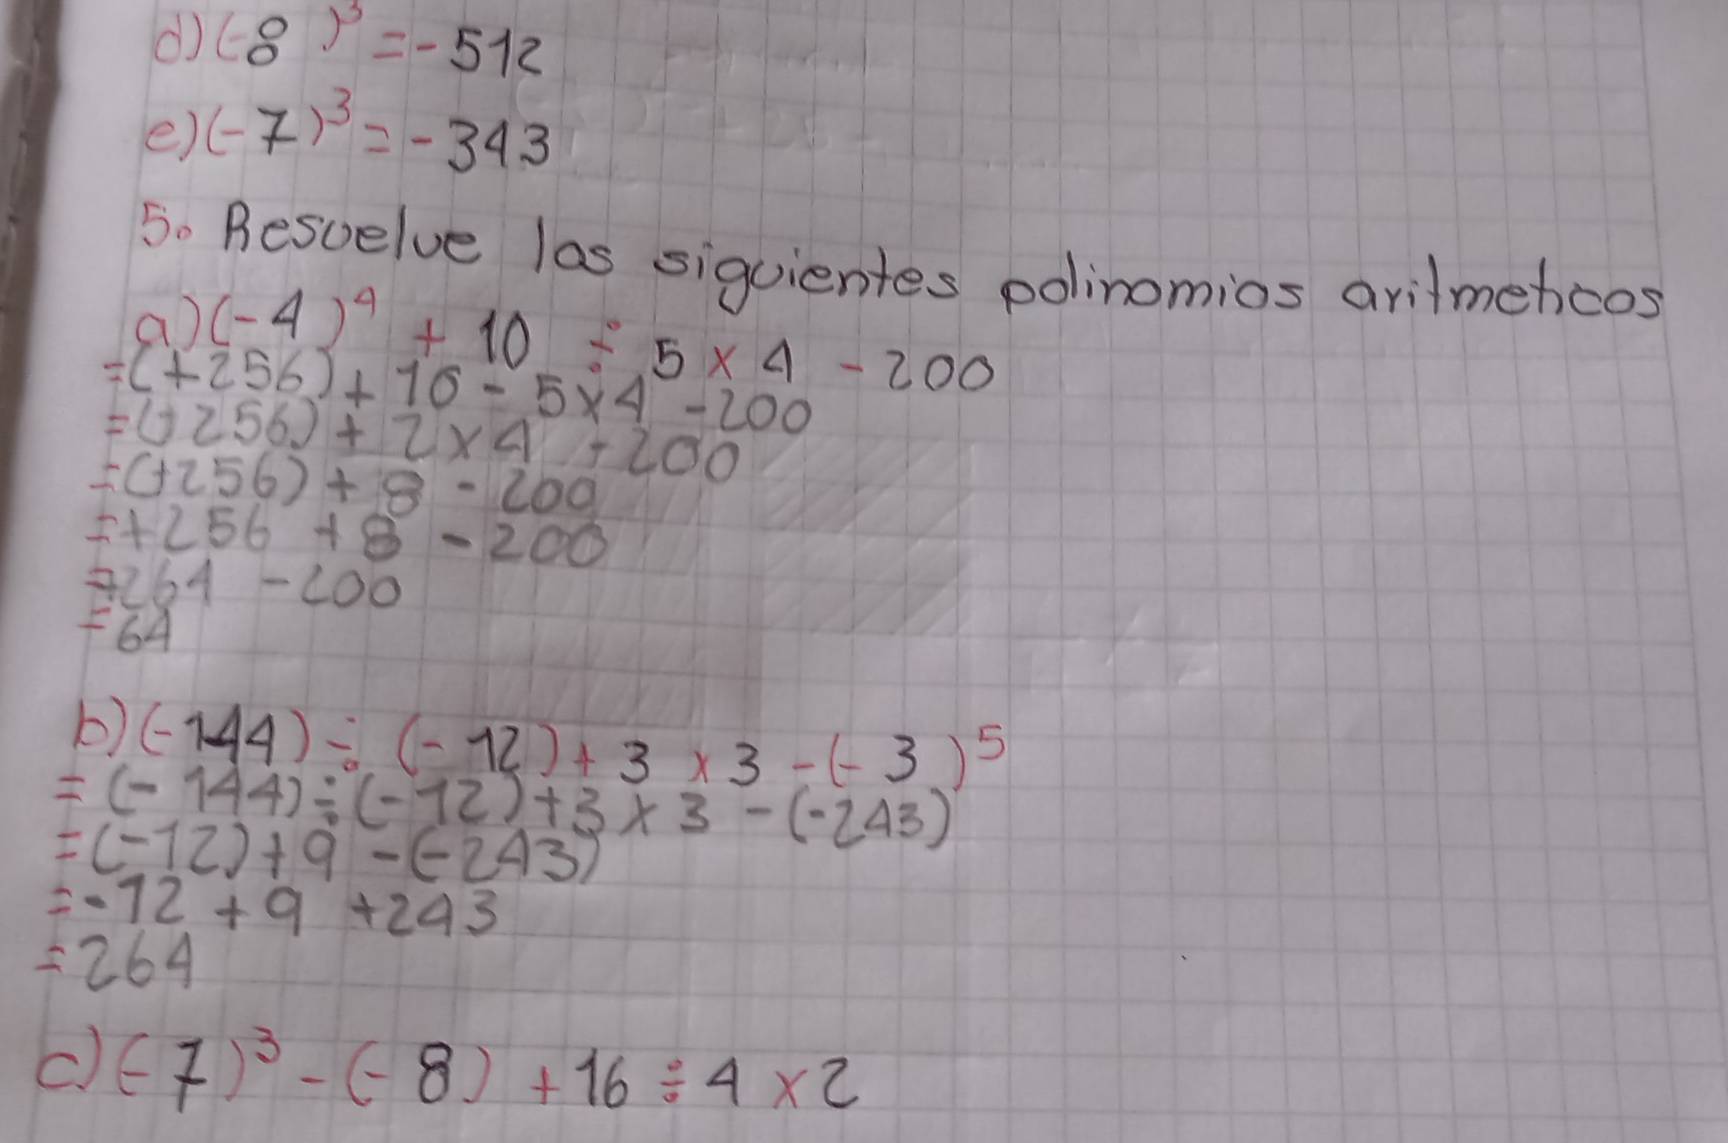 d) (-8 )³ = -512
e) (-7)³ = -343
5. Resuelve los siguientes polinomios aritmeticos
a) (-4 )⁴ + 10 ÷ 5 x 4 - 200
= (+256) + 10 - 5x4 - 200
= (+256) + 2 x 4 - 200
= (+256) + 8 - 200
= +256 + 8 - 200
= +264 - 200
= 64
b) (-144) ÷ (-12) + 3 x 3 - (-3 )⁵
= (-144) ÷ (-12) + 3 x 3 - (-243)
= (-12) + 9 - (-243)
= -12 + 9 + 243
= 264
c) (-7 )³ - (-8) + 16 ÷ 4 x 2